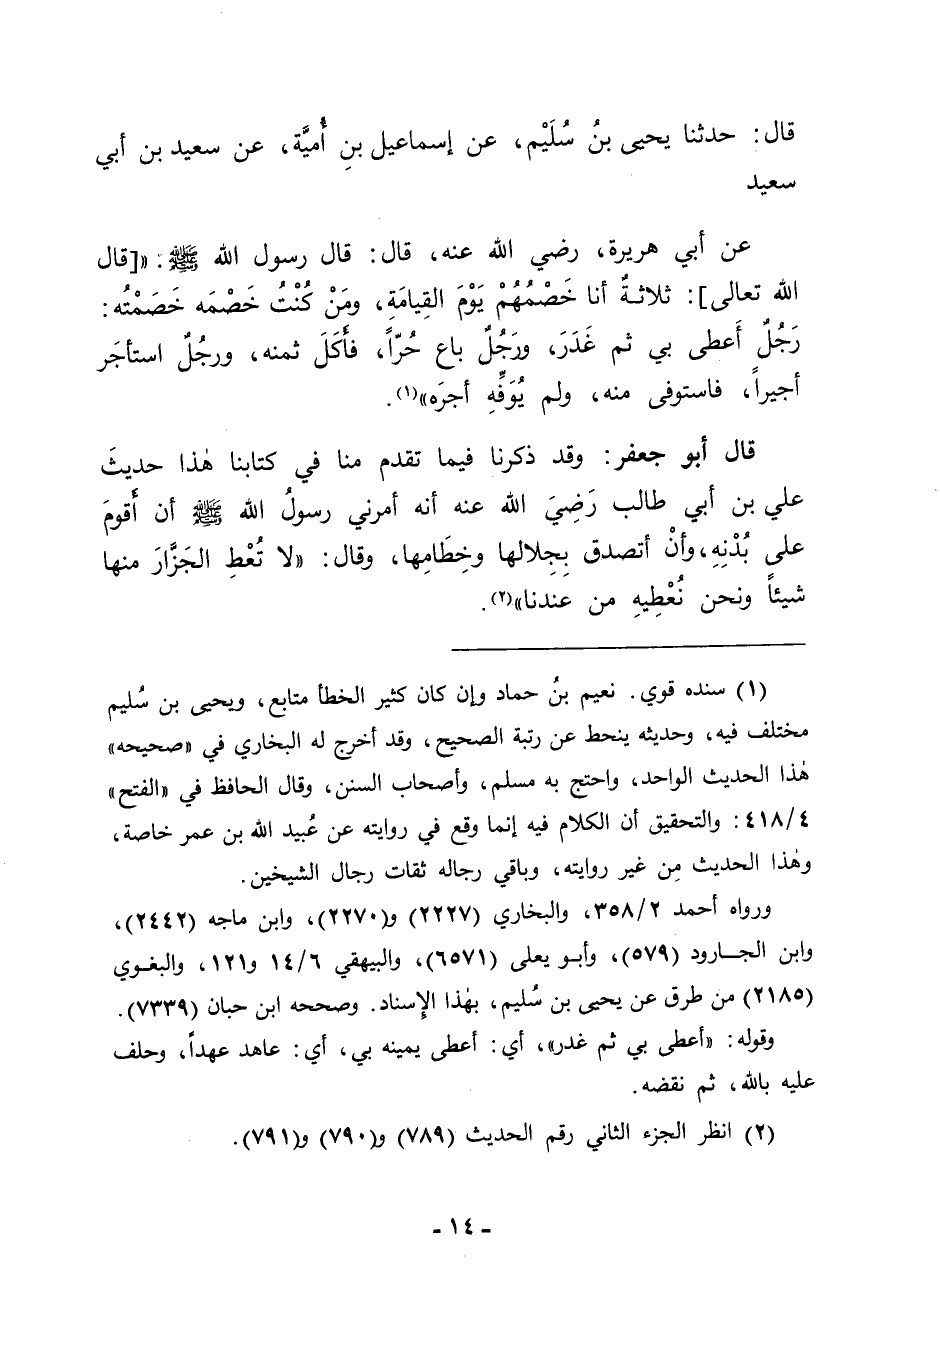 قال: حدثنا يحيى بنُ سُلَيْم، عن إسماعيل بنِ أُميَّة، عن سعيد بن أبي
سعيد
عن أبي هريرة، رضي الله عنه، قال: قال رسول الله ﷺ: «[قال
الله تعالى]: ثلاثةٌ أنا خَصْمُهُمْ يَوْمَ القِيامَةِ، ومَنْ كُنْتُ خَصْمَه خَصَمْتُه:
رَجُلٌ أَعطى بي ثم غَدَرَ، ورَجُلٌ باع حُرّاً، فأَكَلَ ثمنه، ورجُلٌ استأجَر
أجيراً، فاستوفى منه، ولم يُوَفِّهِ أجرَه»(١).
قال أبو جعفر: وقد ذكرنا فيما تقدم منا في كتابنا هٰذا حديثَ
علي بن أبي طالب رَضِيَ الله عنه أنه أمرني رسولُ الله ﷺ أن أَقومَ
على بُدْنِهِ،وأنْ أتصدق بِجِلالها وخِطَامِها، وقال: «لا تُعْطِ الجَزَّارَ منها
شيئاً ونحن نُعْطِيهِ من عندنا»(٢).
(١) سنده قوي. نعيم بنُ حماد وإن كان كثير الخطأ متابع، ويحيى بن سُليم
مختلف فيه، وحديثه ينحط عن رتبة الصحيح، وقد أخرج له البخاري في «صحيحه»
هٰذا الحديث الواحد، واحتج به مسلم، وأصحاب السنن، وقال الحافظ في «الفتح»
٤١٨/٤: والتحقيق أن الكلام فيه إنما وقع في روايته عن عُبيد الله بن عمر خاصة،
وهٰذا الحديث مِن غير روايته، وباقي رجاله ثقات رجال الشيخين.
ورواه أحمد ٣٥٨/٢، والبخاري (٢٢٢٧) و(٢٢٧٠)، وابن ماجه (٢٤٤٢)،
وابن الجارود (٥٧٩)، وأبو يعلى (٦٥٧١)، والبيهقي ١٤/٦ و١٢١، والبغوي
(٢١٨٥) من طرق عن يحيى بن سُليم، بهٰذا الإسناد. وصححه ابن حبان (٧٣٣٩).
وقوله: «أعطى بي ثم غدر»، أي: أعطى يمينه بي، أي: عاهد عهداً، وحلف
عليه بالله، ثم نقضه.
(٢) انظر الجزء الثاني رقم الحديث (٧٨٩) و(٧٩٠) و(٧٩١).
- ١٤ -